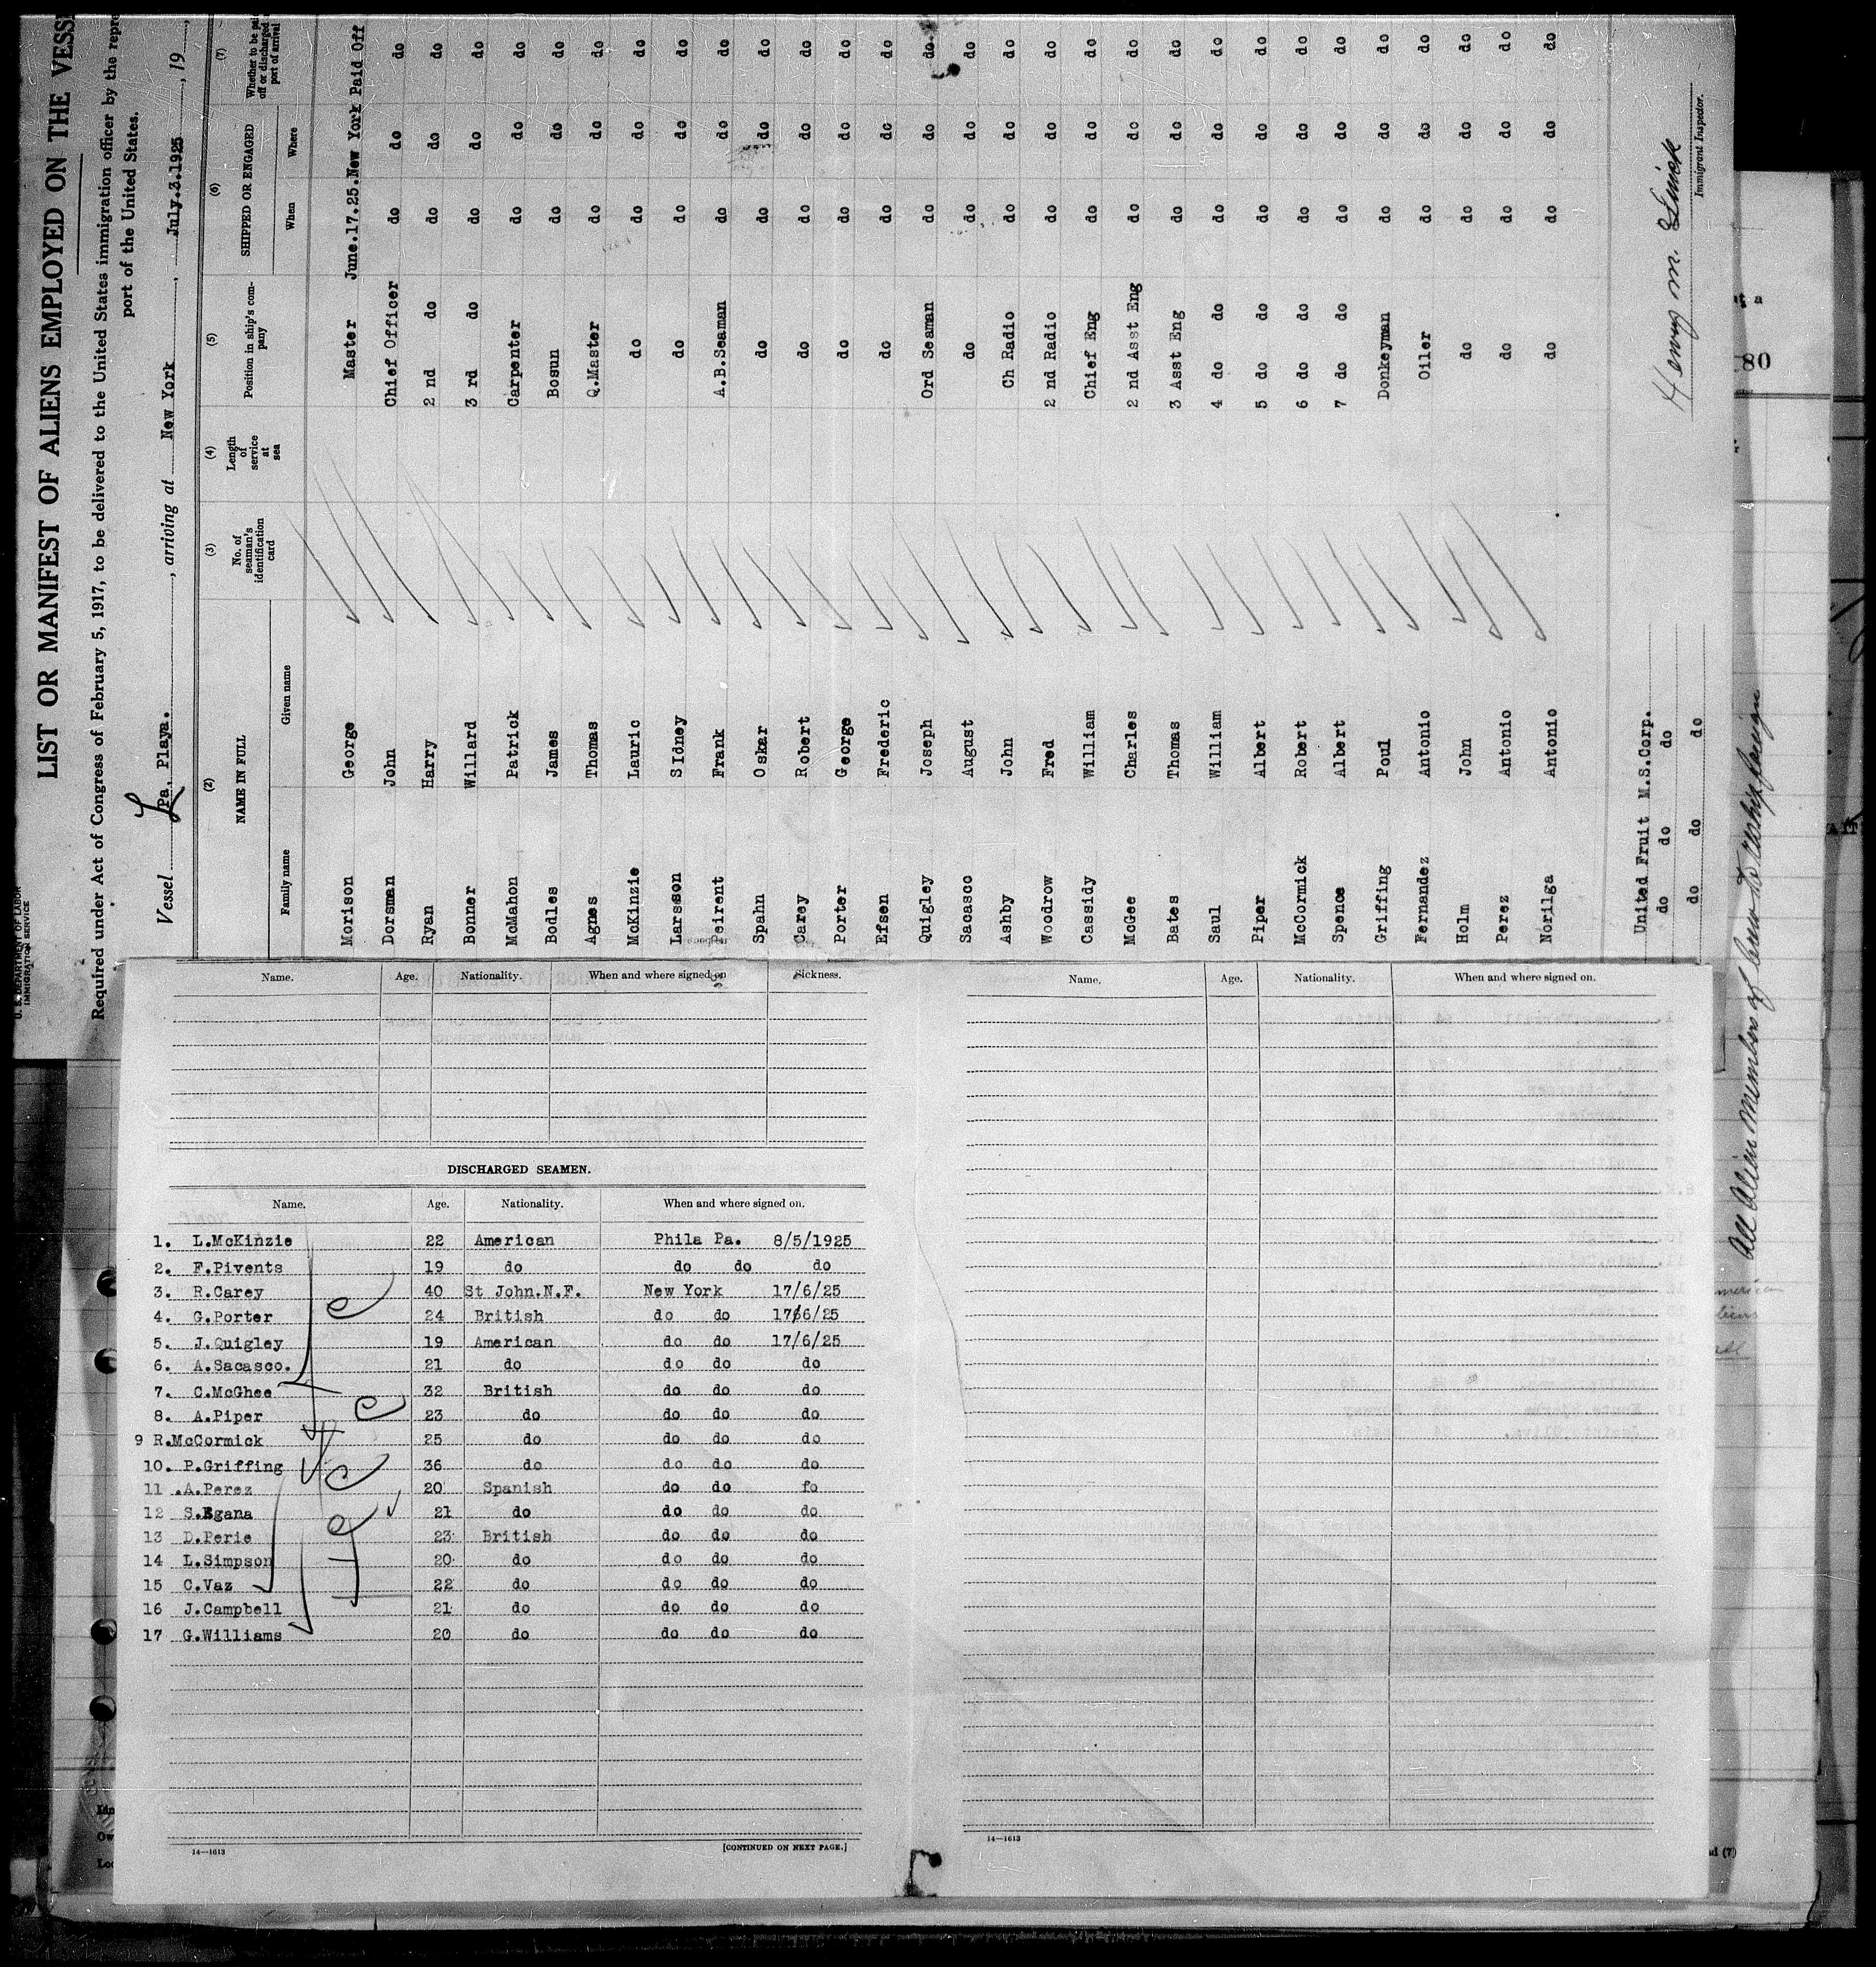 U. S. DEPARTMENT OF LABOR
IMMIGRATION SERVICE
LIST OR MANIFEST OF ALIENS EMPLOYED ON THE VESS
Required under Act of Congress of February 5, 1917, to be delivered to the United States immigration officer by the repre
port of the United States.
Vessel Pa. Playa. , arriving at New York , July.3.1925 , 19
(2) (3) (4) (5) (6) (7)
NAME IN FULL No. of seaman's identification card Length of service at sea Position in ship's company SHIPPED OR ENGAGED Whether to be paid off or discharged port of arrival
Family name Given name When Where
Morison George Master June.17.25.New York Paid Off
Dorsman John Chief Officer do do do
Ryan Harry 2 nd do do do do
Bonner Willard 3 rd do do do do
McMahon Patrick Carpenter do do do
Bodles James Bosun do do do
Agnes Thomas Q.Master do do do
McKinzie Lauric do do do do
Larsson Sidney do do do do
Peirent Frank A.B.Seaman do do do
Spahn Oskar do do do do
Carey Robert do do do do
Porter George do do do do
Efsen Frederic do do do do
Quigley Joseph Ord Seaman do do do
Sacasco August do do do do
Ashby John Ch Radio do do do
Woodrow Fred 2 nd Radio do do do
Cassidy William Chief Eng do do do
McGee Charles 2 nd Asst Eng do do do
Bates Thomas 3 Asst Eng do do do
Saul William 4 do do do do do
Piper Albert 5 do do do do do
McCormick Robert 6 do do do do do
Spence Albert 7 do do do do do
Griffing Poul Donkeyman do do do
Fernandez Antonio Oiler do do do
Holm John do do do do
Perez Antonio do do do do
Norilga Antonio do do do do
United Fruit M.S.Corp.
do do do
do do do
Henry M.
Immigrant Inspector.
All Alien Members of Crew to reship foreign
80
Name. Age. Nationality. When and where signed on Sickness.
DISCHARGED SEAMEN.
Name. Age. Nationality. When and where signed on.
1. L.McKinzie 22 American Phila Pa. 8/5/1925
2. F.Pivents 19 do do do do
3. R.Carey 40 St John.N.F. New York 17/6/25
4. G.Porter 24 British do do 17/6/25
5. J.Quigley 19 American do do 17/6/25
6. A.Sacasco. 21 do do do do
7. C.McGhee 32 British do do do
8. A.Piper 23 do do do do
9 R.McCormick 25 do do do do
10. P.Griffing 36 do do do do
11 .A.Perez 20 Spanish do do fo
12 S.Egana 21 do do do do
13 D.Perie 23 British do do do
14 L.Simpson 20 do do do do
15 C.Vaz 22 do do do do
16 J.Campbell 21 do do do do
17 G.Williams 20 do do do do
14—1613 [CONTINUED ON NEXT PAGE.]
Name. Age. Nationality. When and where signed on.
14—1613